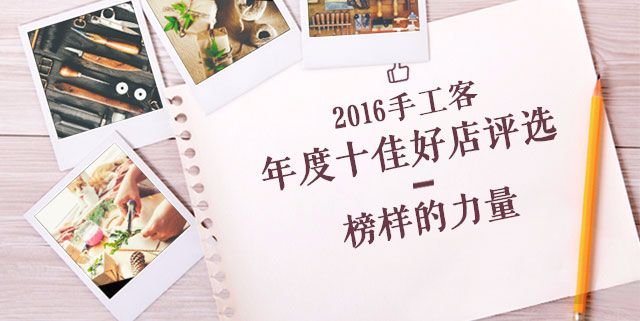 2016手工客
年度十佳好店评选
榜样的力量